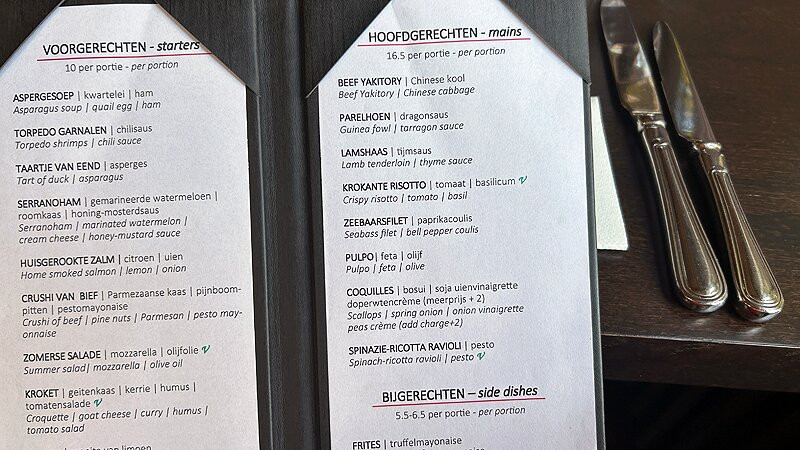 VOORGERECHTEN - starters
10 per portie - per portion
ASPERGESOEP | kwartelei | ham
Asparagus soup | quail egg | ham
TORPEDO GARNALEN | chilisaus
Torpedo shrimps | chili sauce
TAARTJE VAN EEND | asperges
Tart of duck | asparagus
SERRANOHAM | gemarineerde watermeloen |
roomkaas | honing-mosterdsaus
Serranoham | marinated watermelon |
cream cheese | honey-mustard sauce
HUISGEROOKTE ZALM | citroen | uien
Home smoked salmon | lemon | onion
CRUSHI VAN BIEF | Parmezaanse kaas | pijnboom-
pitten | pestomayonaise
Crushi of beef | pine nuts | Parmesan | pesto may-
onnaise
ZOMERSE SALADE | mozzarella | olijfolie V
Summer salad| mozzarella | olive oil
KROKET | geitenkaas | kerrie | humus |
tomatensalade V
Croquette | goat cheese | curry | humus |
tomato salad
van limoen
HOOFDGERECHTEN - mains
16.5 per portie - per portion
BEEF YAKITORY | Chinese kool
Beef Yakitory | Chinese cabbage
PARELHOEN | dragonsaus
Guinea fowl | tarragon sauce
LAMSHAAS | tijmsaus
Lamb tenderloin | thyme sauce
KROKANTE RISOTTO | tomaat | basilicum V
Crispy risotto | tomato | basil
ZEEBAARSFILET | paprikacoulis
Seabass filet | bell pepper coulis
PULPO| feta | olijf
Pulpo | feta | olive
COQUILLES | bosui | soja uienvinaigrette
doperwtencrème (meerprijs + 2)
Scallops | spring onion | onion vinaigrette
peas crème (add charge+2)
SPINAZIE-RICOTTA RAVIOLI | pesto
Spinach-ricotta ravioli | pesto V
BIJGERECHTEN – side dishes
5.5-6.5 per portie - per portion
FRITES | truffelmayonaise